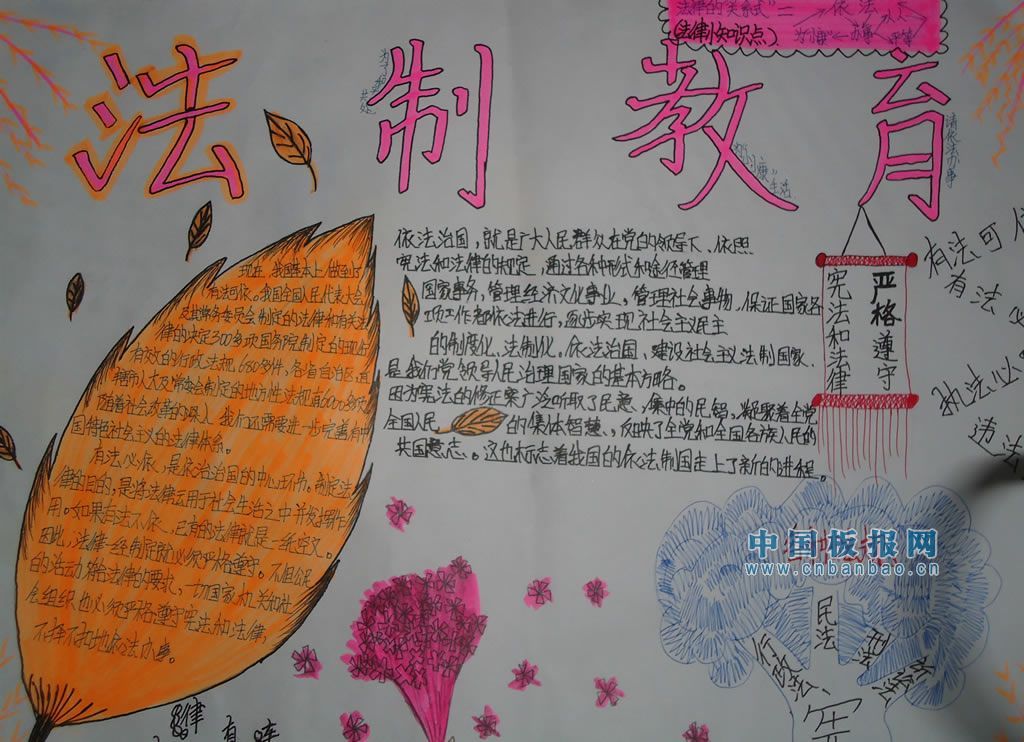 法律的"关系式"＝
依法
(法律小知识点)
办事
法制教育
请依法办事
"小康"
生活
依法治国，就是广大人民群众在党的领导下、依照
宪法和法律的规定，通过各种形式和途径管理
国家事务，管理经济文化事业，管理社会事物，保证国家各
项工作都依法进行，逐步实现社会主义民主
的制度化、法制化。依法治国，建设社会主义法制国家、
是我们党领导人民治理国家的基本方略。
因为宪法的修正案广泛听取了民意，集中的民智，凝聚着全党
全国人民的集体智慧、，反映了全党和全国各族人民的
共国意志、。这也标志着我国的依法制国走上了新的进程。
现在，我国基本上做到了
有法可依。我国全国人民代表大会
及其常务委员会制定的法律和有关法
律的决定300多项国务院制定的现行
有效的行政法规680多件，各省自治区直
辖市人大及常委会制定的地方性法规有6000多项
随着社会改革的深入 我们还需要进一步完善有中
国特色社会主义的法律体系。
有法必依，是依治治国的中心环节。制定法
律的目的，是将法律运用于社会生活之中并发挥作
用。如果有法不依、已有的法律就是一纸空文。
因此，法律一经制定就必须严格遵守。不但公民
的活动符合法律的要求，一切国家机关和社
会组织也必须严格遵守宪法和法律，
不择不扣地依法办事。
严格遵守
宪法和法律
有法可依
有法必
执法必
违法
中国板报网
www.cnbanbao.cn
民法
行政法
律有